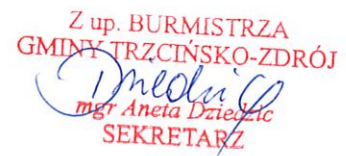 Z up. BURMISTRZA
GMINY TRZCIŃSKO-ZDRÓJ
mgr Aneta Dziedzic
SEKRETARZ